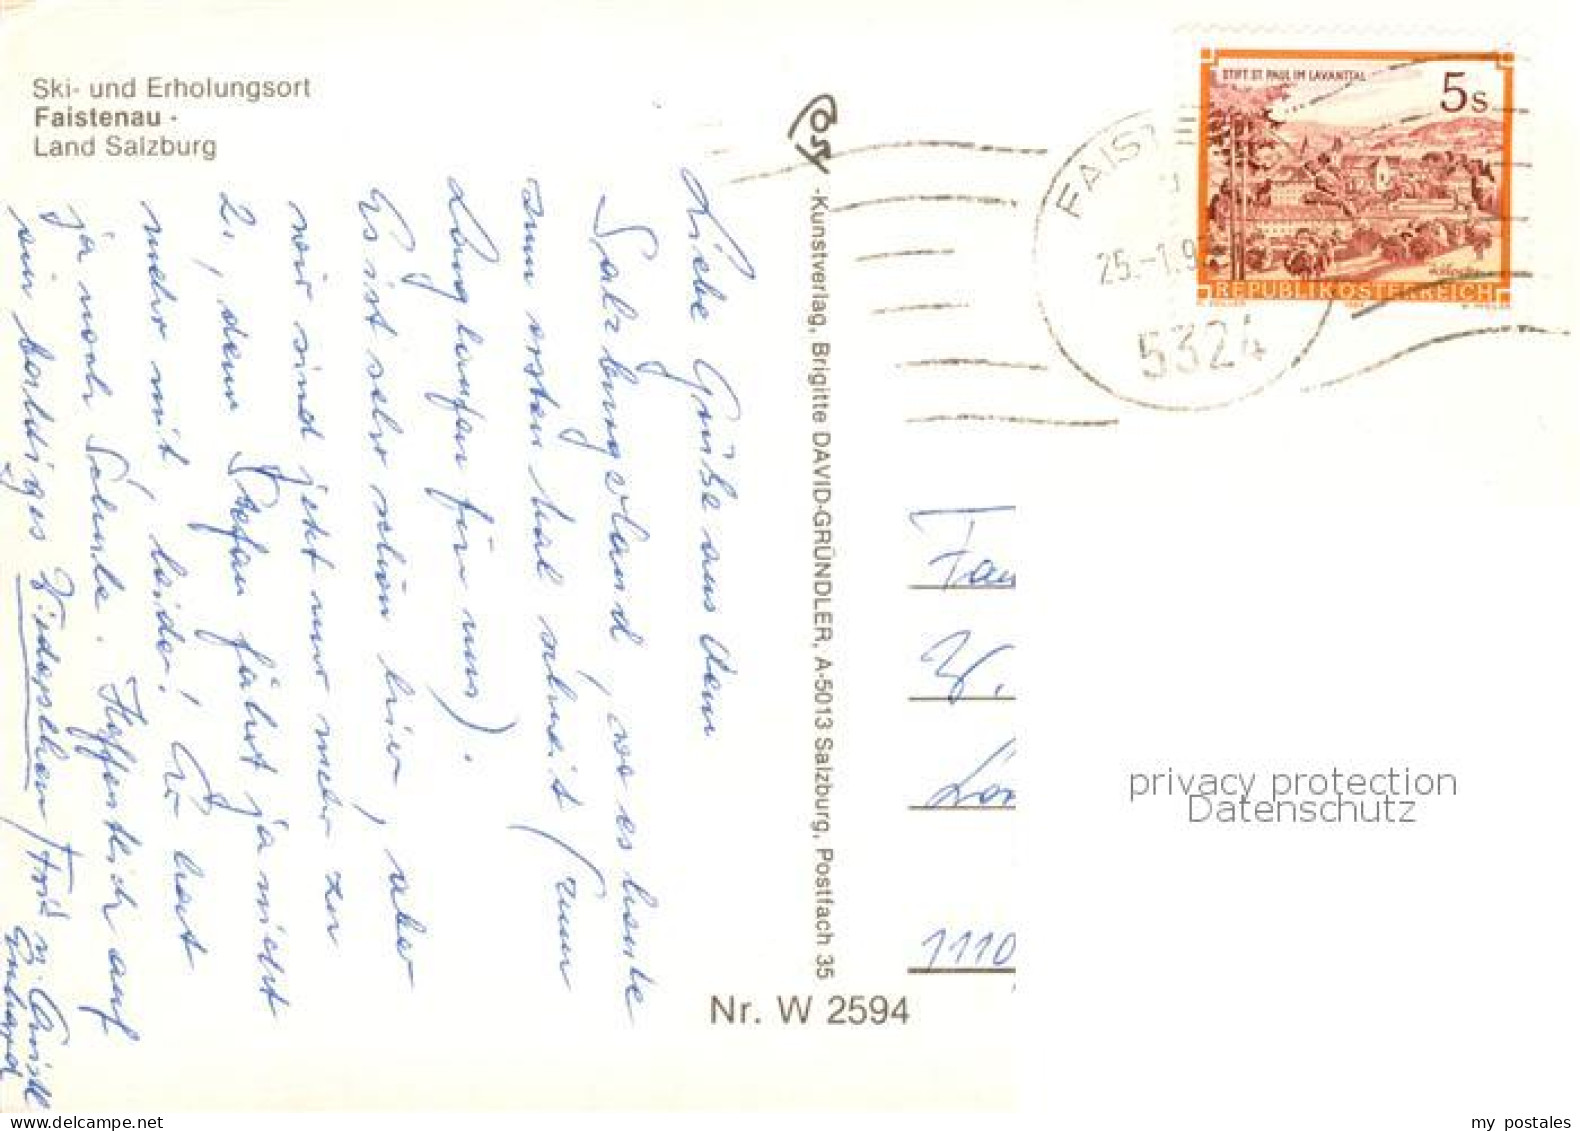 Ski- und Erholungsort
Faistenau -
Land Salzburg
Liebe Grüße aus dem
Salzburgerland, wo es heute
zum ersten Mal schneit (zum
Langlaufen für uns).
Es ist sehr schön hier, aber
wir sind jetzt nur mehr zu
2., denn Stefan fährt ja nicht
mehr mit, leider! Er hat
ja noch Schule. Hoffentlich auf
ein baldiges Wiedersehen
-Kunstverlag, Brigitte DAVID-GRÜNDLER, A-5013 Salzburg, Postfach 35
Nr. W 2594
STIFT ST. PAUL IM LAVANTTAL
5s
REPUBLIK ÖSTERREICH
FAIST
25.-1.9
5324
Fam
W.
1110
privacy protection
Datenschutz
my postales